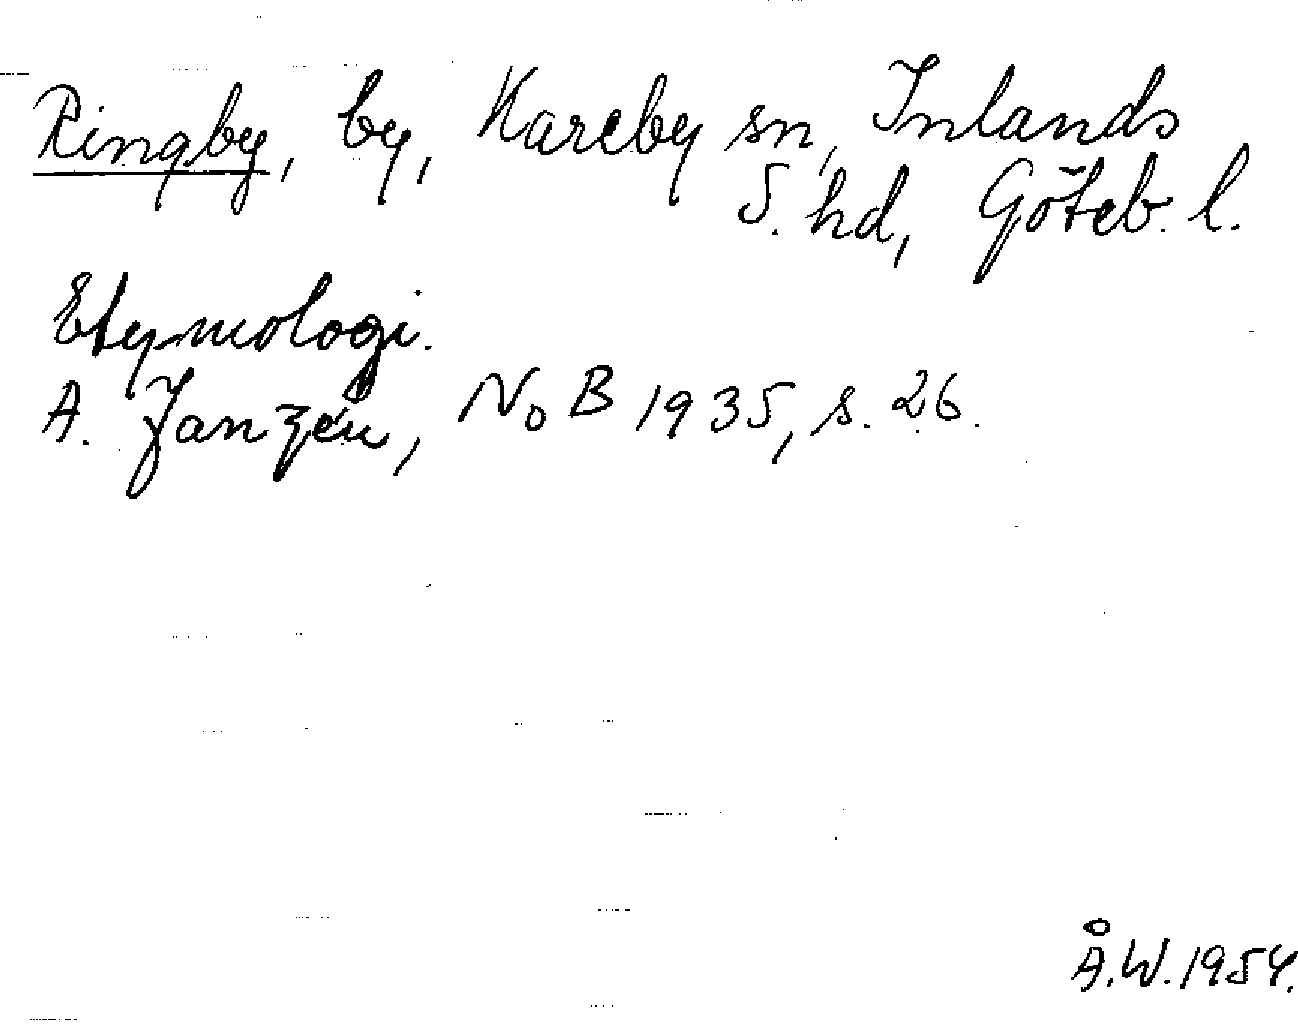 Ringby, by, Kareby sn, Inlands
S. hd, Göteb. l.
Etymologi.
A. Janzén, NoB 1935, s. 26.
Å.W. 1954.